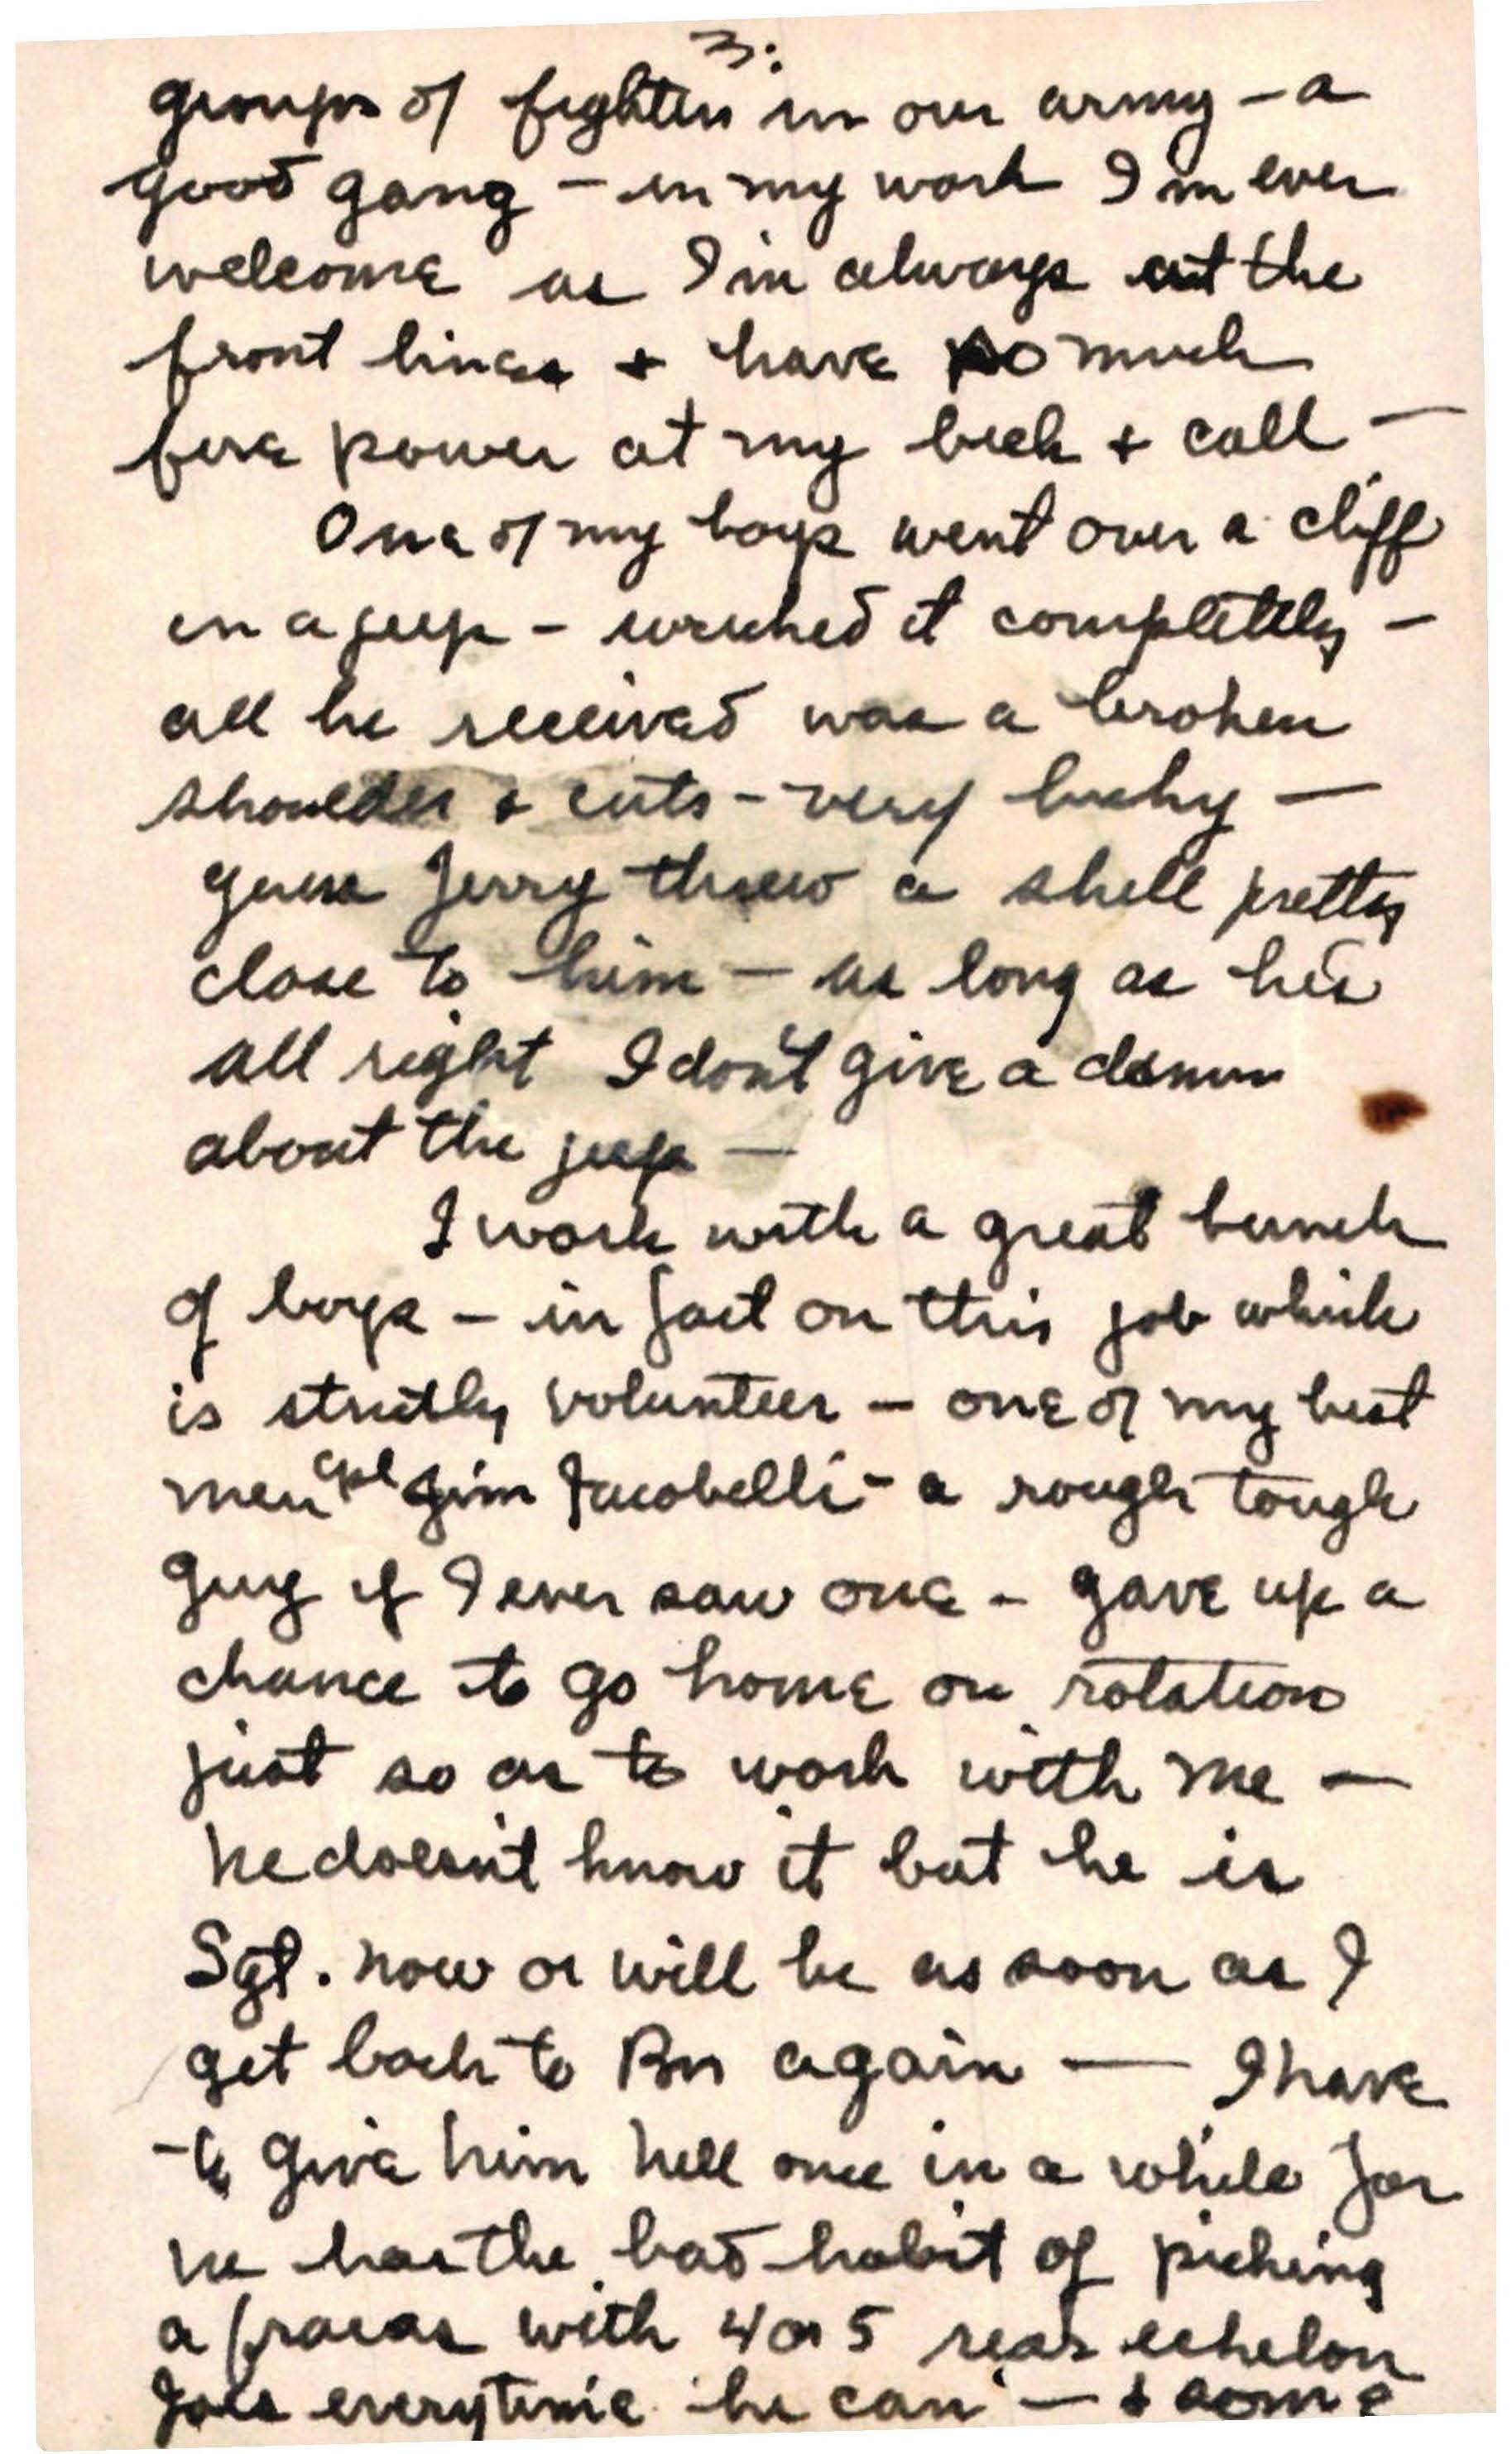 3:
groups of fighters in our army - a
good gang - in my work I'm ever
welcome as I'm always at the
front lines + have so much
fire power at my beck + call -
One of my boys went over a cliff
in a jeep - wrecked it completely -
all he received was a broken
shoulder + cuts - very lucky -
guess Jerry threw a shell pretty
close to him - as long as he's
all right I don't give a damn
about the jeep -
I work with a great bunch
of boys - in fact on this job which
is strictly volunteer - one of my best
men Cpl Jim Iacobelli - a rough tough
guy if I ever saw one - gave up a
chance to go home on rotation
just so as to work with me -
he doesn't know it but he is
Sgt. now or will be as soon as I
get back to Bn again - I have
to give him hell once in a while for
he has the bad habit of picking
a fracas with 4 or 5 rear echelon
Joes everytime he can - + some